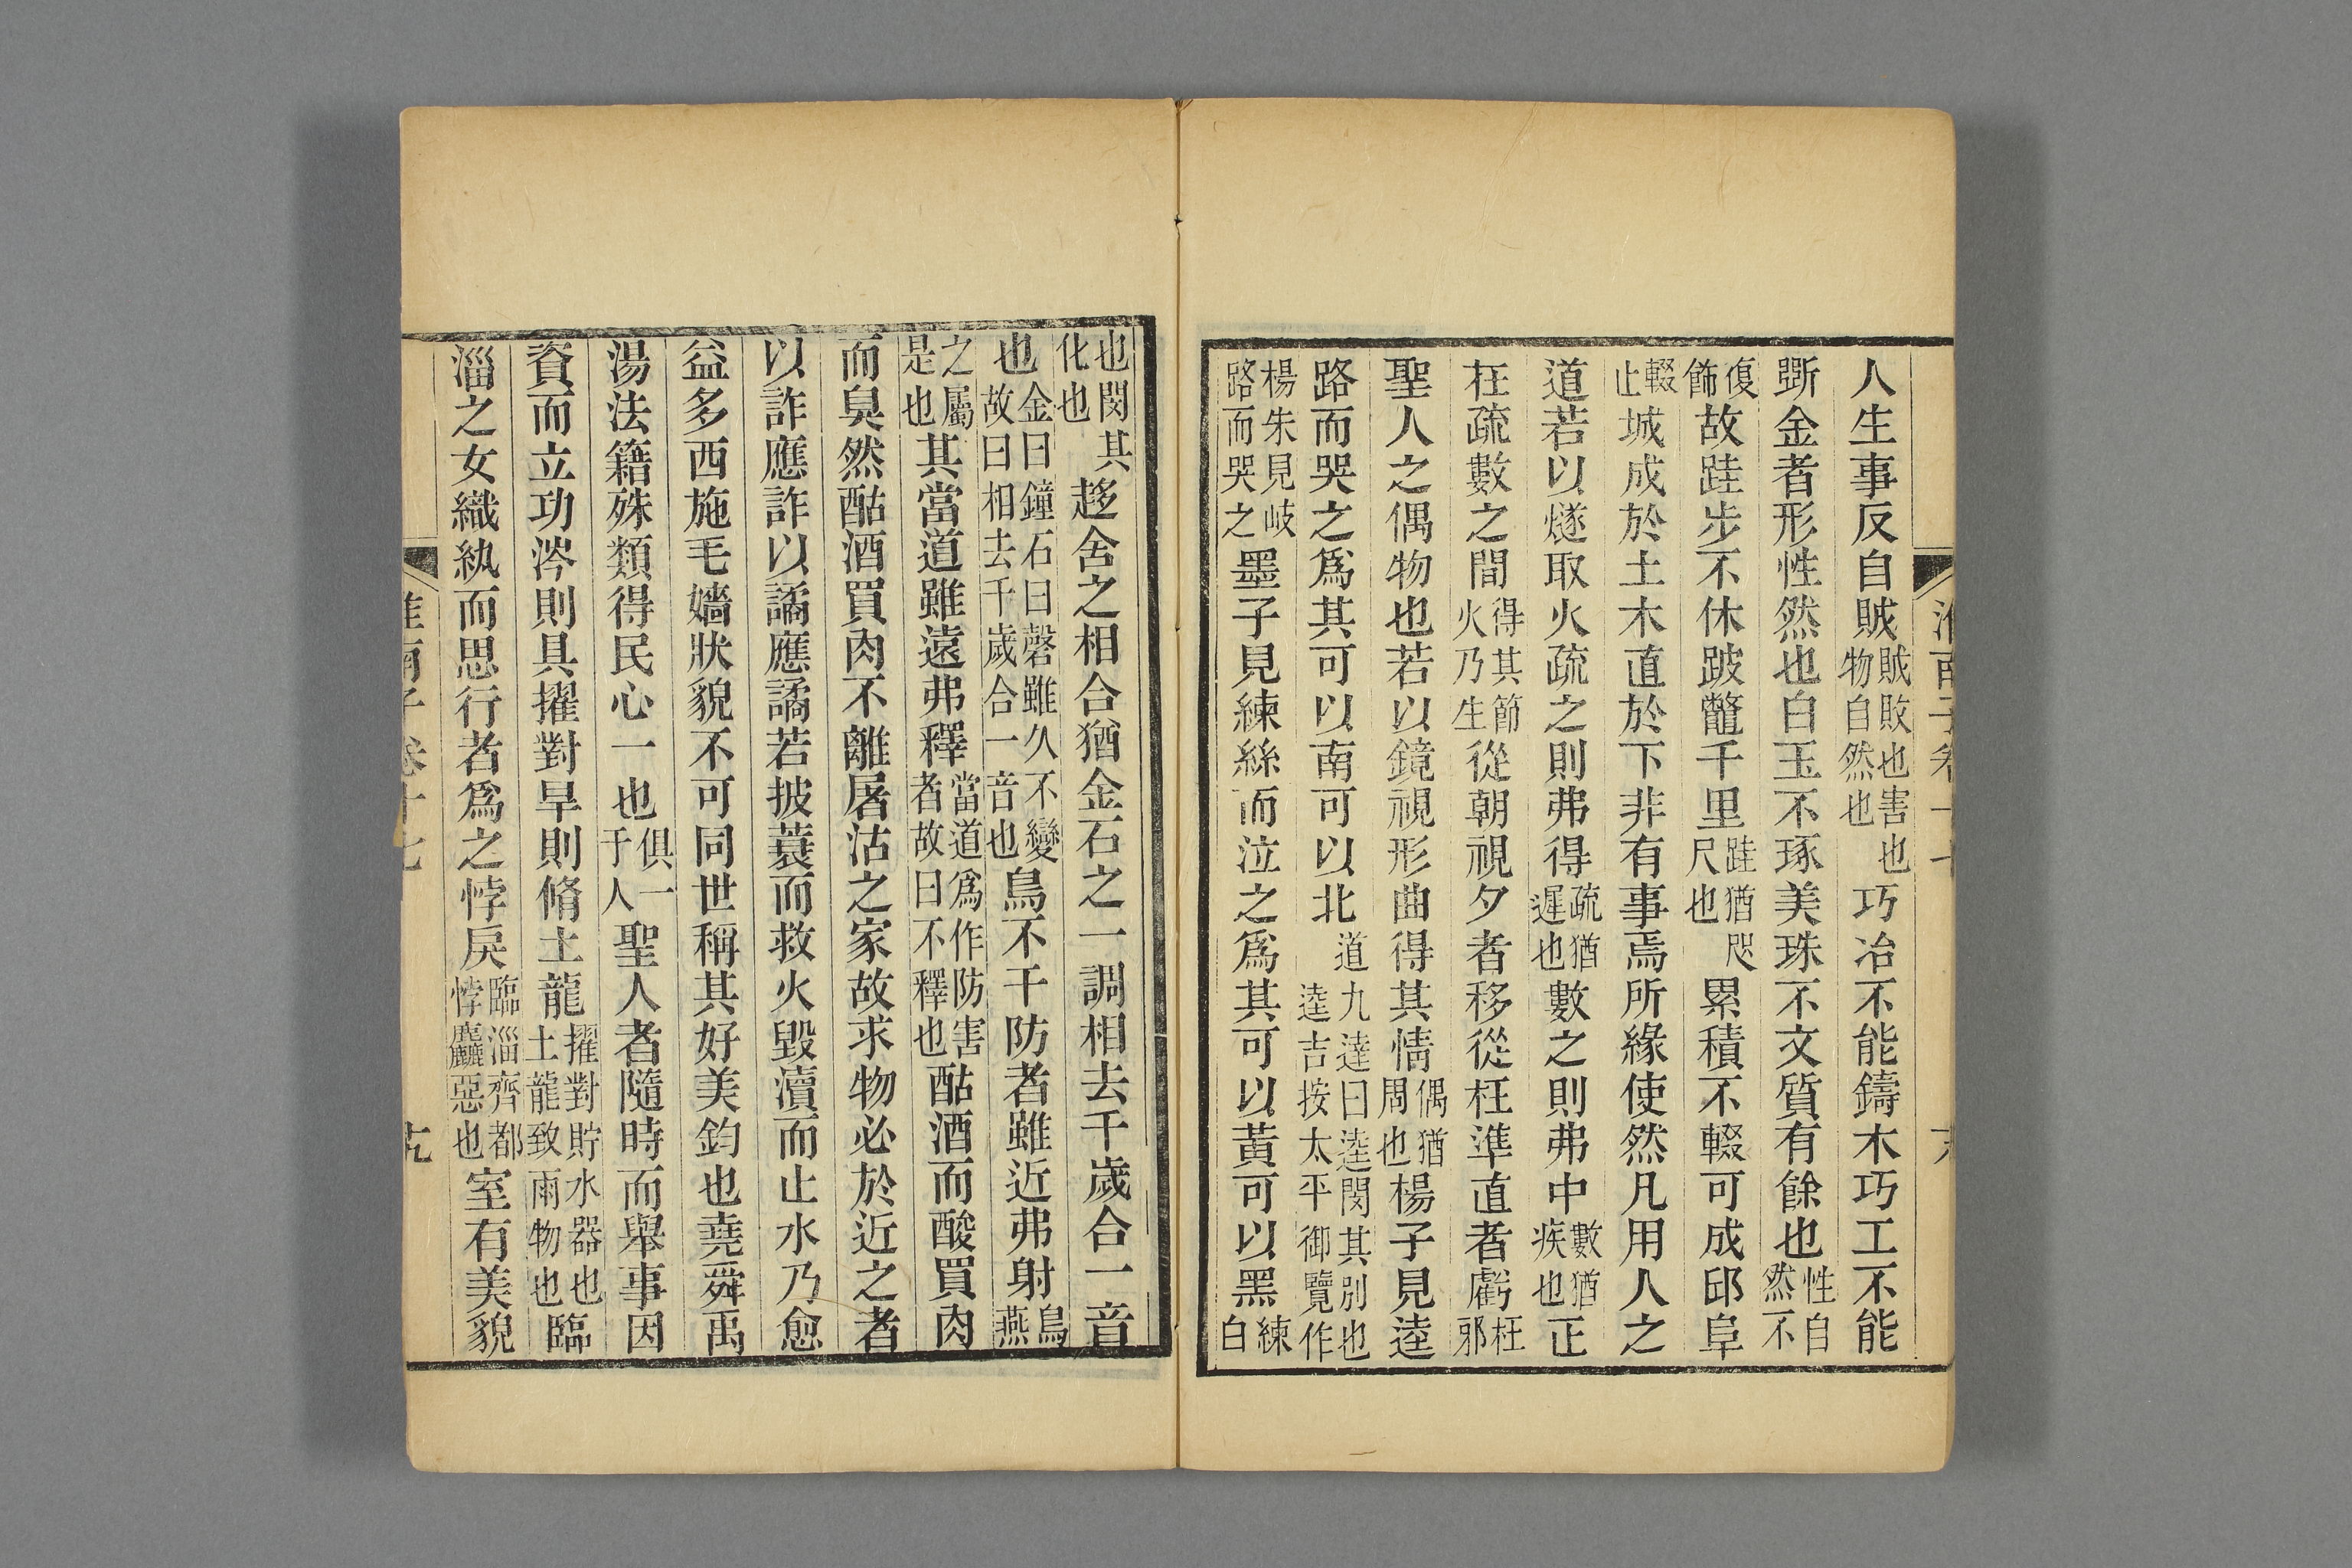 淮南子卷十七
人生事反自賊賊敗也害也物自然也巧冶不能鑄木巧工不能
斲金者形性然也白玉不琢美珠不文質有餘也性自然不
復飾故跬步不休跛鼈千里跬猶咫尺也累積不輟可成邱阜
輟止城成於土木直於下非有事焉所緣使然凡用人之
道若以燧取火疏之則弗得疏猶遲也數之則弗中數猶疾也正
在疏數之間得其節火乃生從朝視夕者移從枉準直者虧枉邪
聖人之偶物也若以鏡視形曲得其情偶猶周也楊子見逵
路而哭之爲其可以南可以北道九達曰逵閔其別也逵吉按太平御覽作
楊朱見岐路而哭之墨子見練絲而泣之爲其可以黃可以黑練白
也閔其化也趍舍之相合猶金石之一調相去千歲合一音
也金曰鐘石曰磬雖久不變故曰相去千歲合一音也鳥不干防者雖近弗射鳥燕
之屬是也其當道雖遠弗釋當道爲作防害者故曰不釋也酤酒而酸買肉
而臭然酤酒買肉不離屠沽之家故求物必於近之者
以詐應詐以譎應譎若披蓑而救火毀瀆而止水乃愈
益多西施毛嬙狀貌不可同世稱其好美鈞也堯舜禹
湯法籍殊類得民心一也俱一于人聖人者隨時而舉事因
資而立功涔則具擢對旱則脩土龍擢對貯水器也土龍致雨物也臨
淄之女織紈而思行者爲之悖戾臨淄齊都悖麤惡也室有美貌
淮南子卷十七